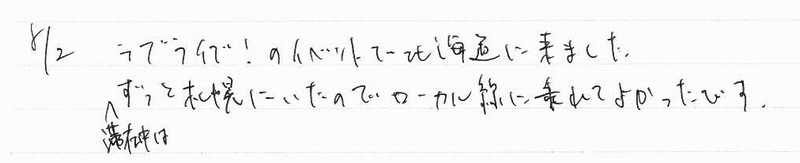 8/2 ラブライブ!のイベントで北海道に来ました。
ずっと札幌にいたのでローカル線に乗れてよかったです。
滞在中は